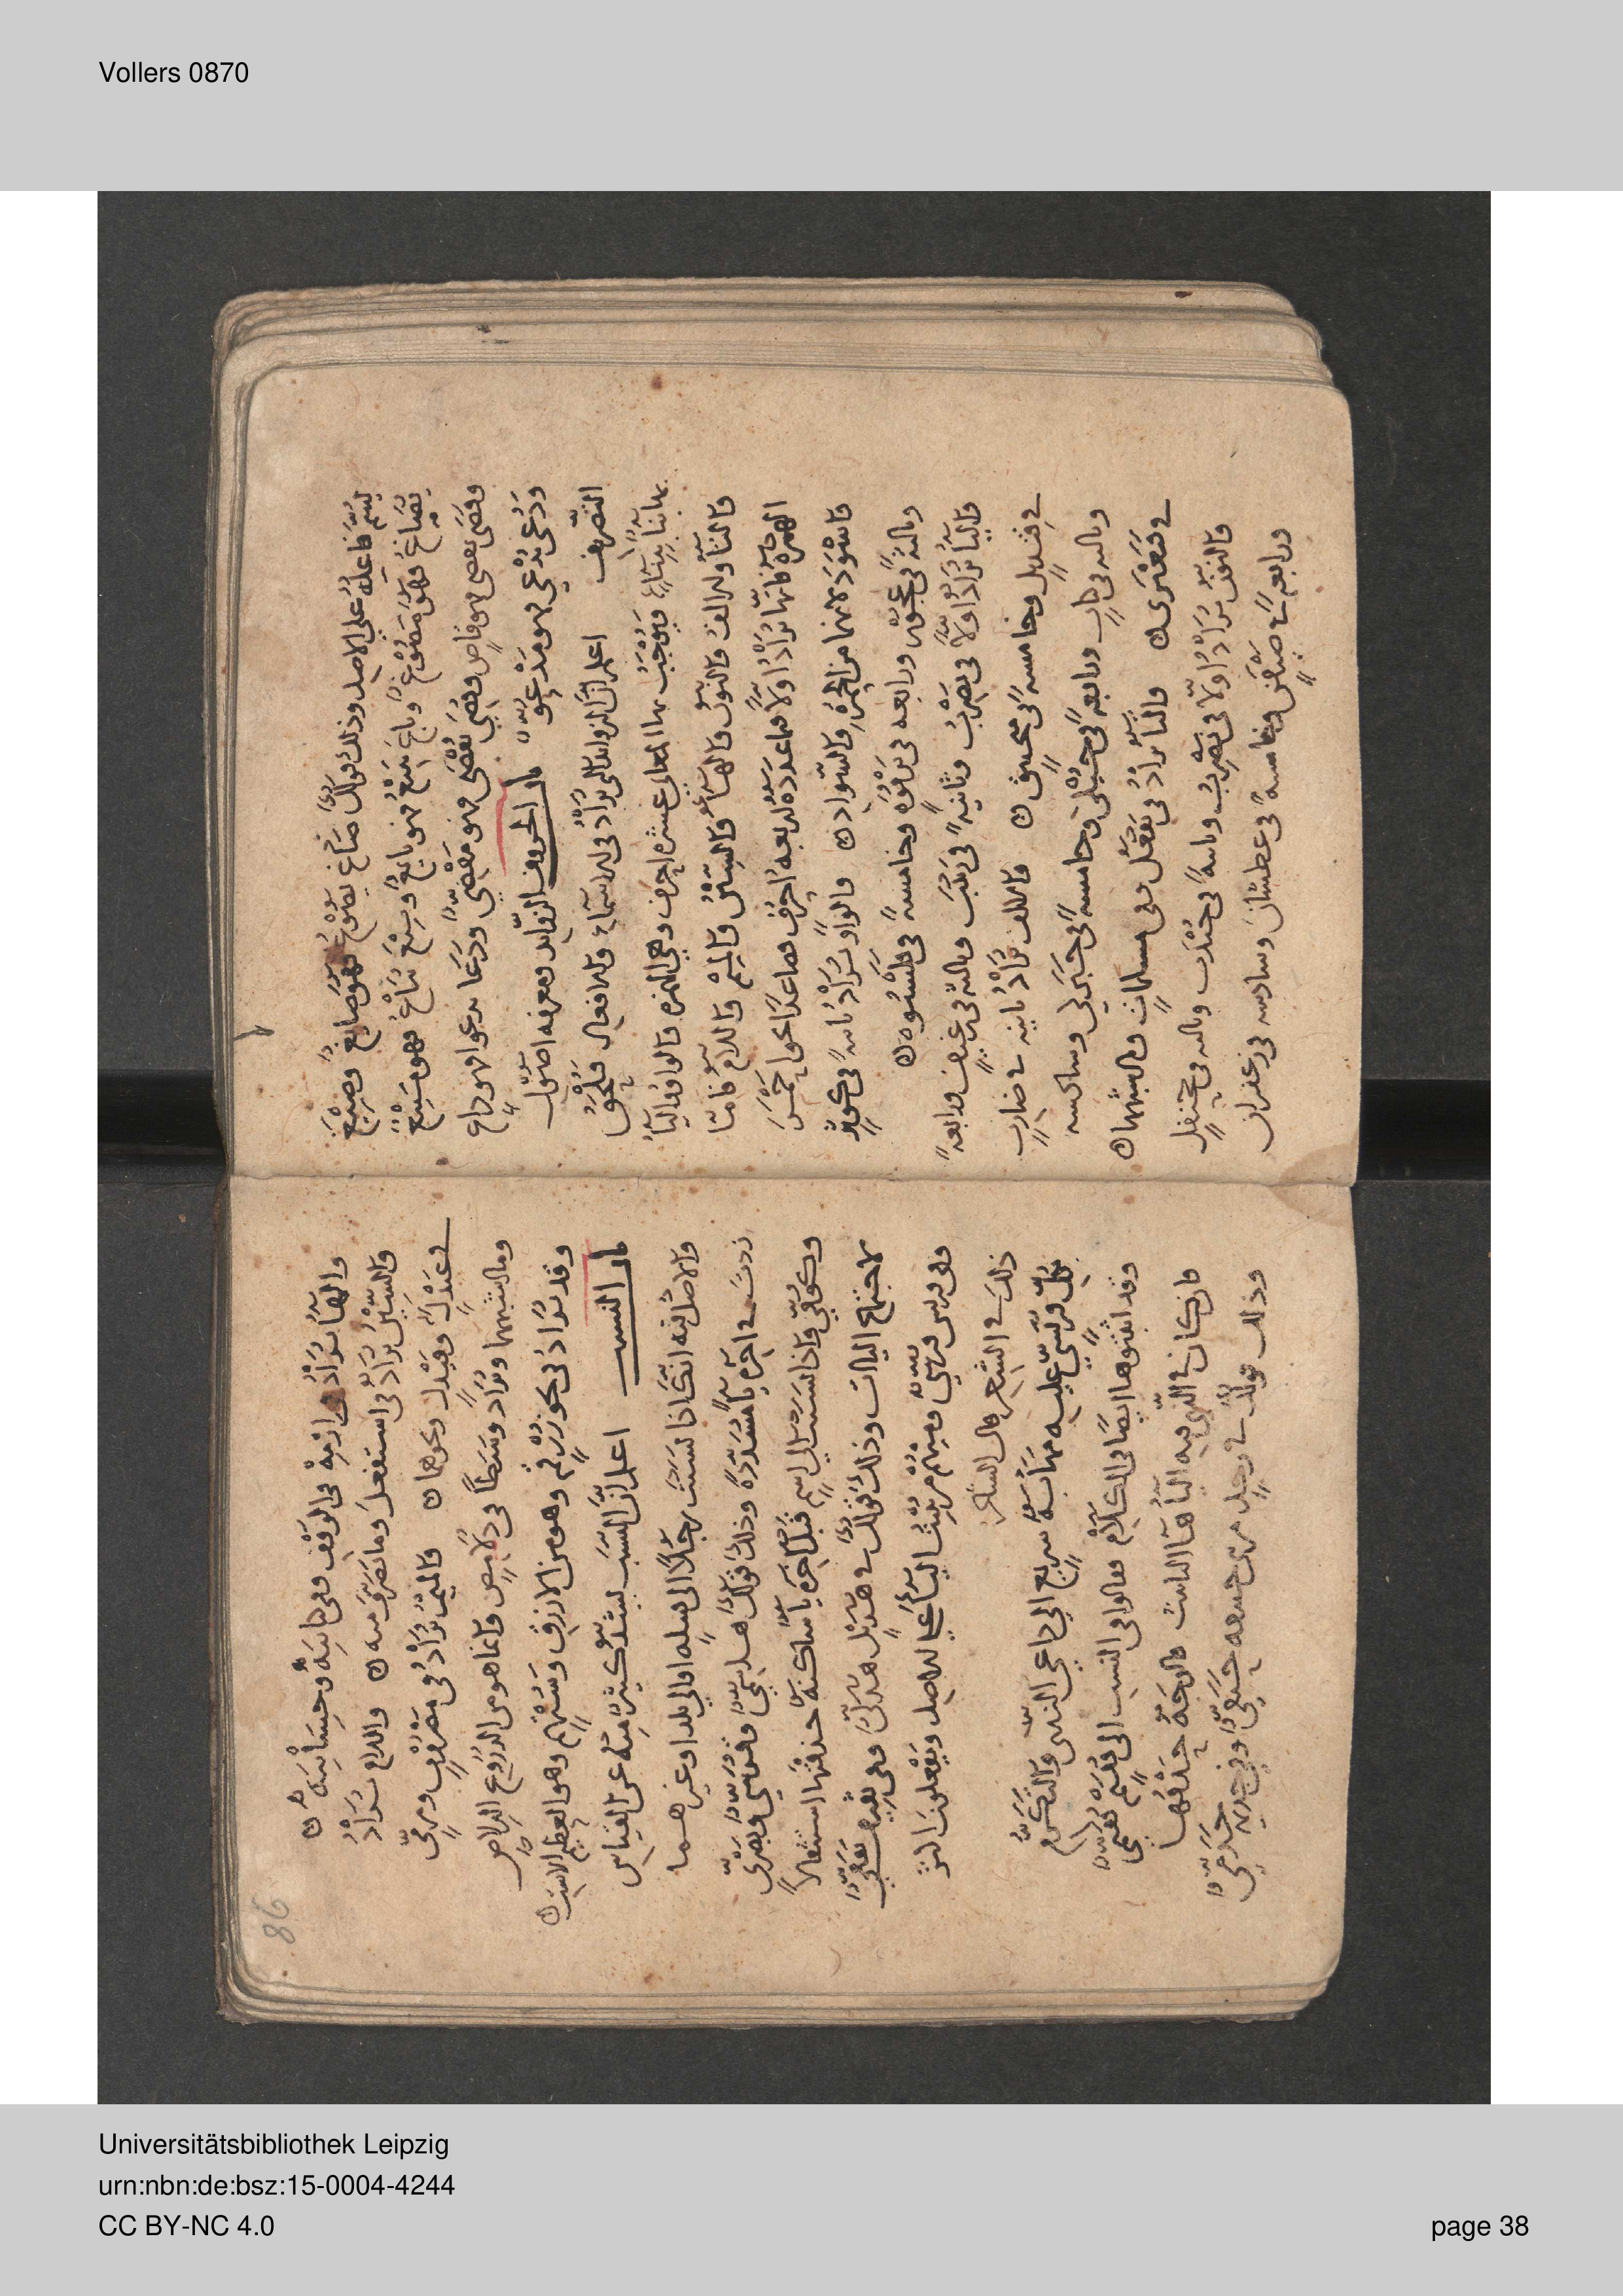 Vollers 0870
يسم فاعله على الاصل وذلك قولك صاغ يصوغ فهو صايغ وصيغ
يصاغ فهو مصوغ وباع يبيع فهو بايع وبيع يباع فهو مبيع
وقضى يقضي فهو قاض وقضي يقضى فهو مقضي ودعا يدعو فهو داع
ودعي يدعى فهو مدعو باب الحروف الزوايد ومعرفة اصول
التصريف اعلم ان الزوايد التي تزاد في الاسماء والافعال فتلحق
بها بناء ببناء ويوجب بها المعاني عشرة احرف وهي الهمزة والواو والياء
والتاء والالف والنون والهاء والسين والميم واللام فاما
الهمزة فانها تزاد اولا فيما عدده اربعة احرف فصاعدا نحو احمر
واسود لانهما من الحمرة والسواد والواو تزاد ثانية في كوثر
وثالثة في عجوز ورابعة في ترقوة وخامسة في قلنسوة
والياء تزاد اولا في يضرب وثانية في زينب وثالثة في رغيف ورابعة
في قنديل وخامسة في منجنيق والالف تزاد ثانية في ضارب
وثالثة في كتاب ورابعة في حبلى وخامسة في حبركى وسادسة
في قبعثرى والتاء تزاد في تفعل وفي مسلمات وما اشبههما
والنون تزاد اولا في نضرب وثانية في جندب وثالثة في جحنفل
ورابعة في ضيفن وخامسة في عطشان وسادسة في زعفران
86
والهاء تزاد في ارمه في الوقف وفي كتابيه وحسابيه
والسين تزاد في استفعل وما تصرف منه واللام تزاد
في عبدل وفيدل ونحوهما والميم تزاد في مضروب ومرمى
وما اشبههما وتزاد وسطا في دلامص وانما هو من الدروع الدلاص
وقد تزاد في نحو زرقم وهو من الازرق وستهم وهو العظيم الاست
باب النسب اعلم ان النسب يشذ كثير منه عن القياس
والاصل فيه انك اذا نسبت رجلا الى قبيله او الى بلد او غيرهما
زدت في اخره ياء مشددة وذلك قولك هاشمي وقيسي وبصري
وكوفي فاذا نسبت الى اسم قبل اخره ياء ساكنة حذفتها استثقالا
لاجتماع الياات وذلك قولك في هذيل هذلي وفي ثقيف ثقفي
وفي قريش قرشي ومنهم من يثبت الياء على الاصل ويفعلون اكثر
ذلك في الشعر قال الشاعر
بكل قريشي عليه مهابة سريع الى داعي الندى والتكرم
وقد اثبتوها ايضا في الكلام فقالوا في النسب الى
فان كان في الذي فيه الياء هاء التانيث فالوجه حذفها
وذلك قولك في رجل من بني حنيفة حنفي وفي جذيمة جذمي
Universitätsbibliothek Leipzig
urn:nbn:de:bsz:15-0004-4244
CC BY-NC 4.0
page 38